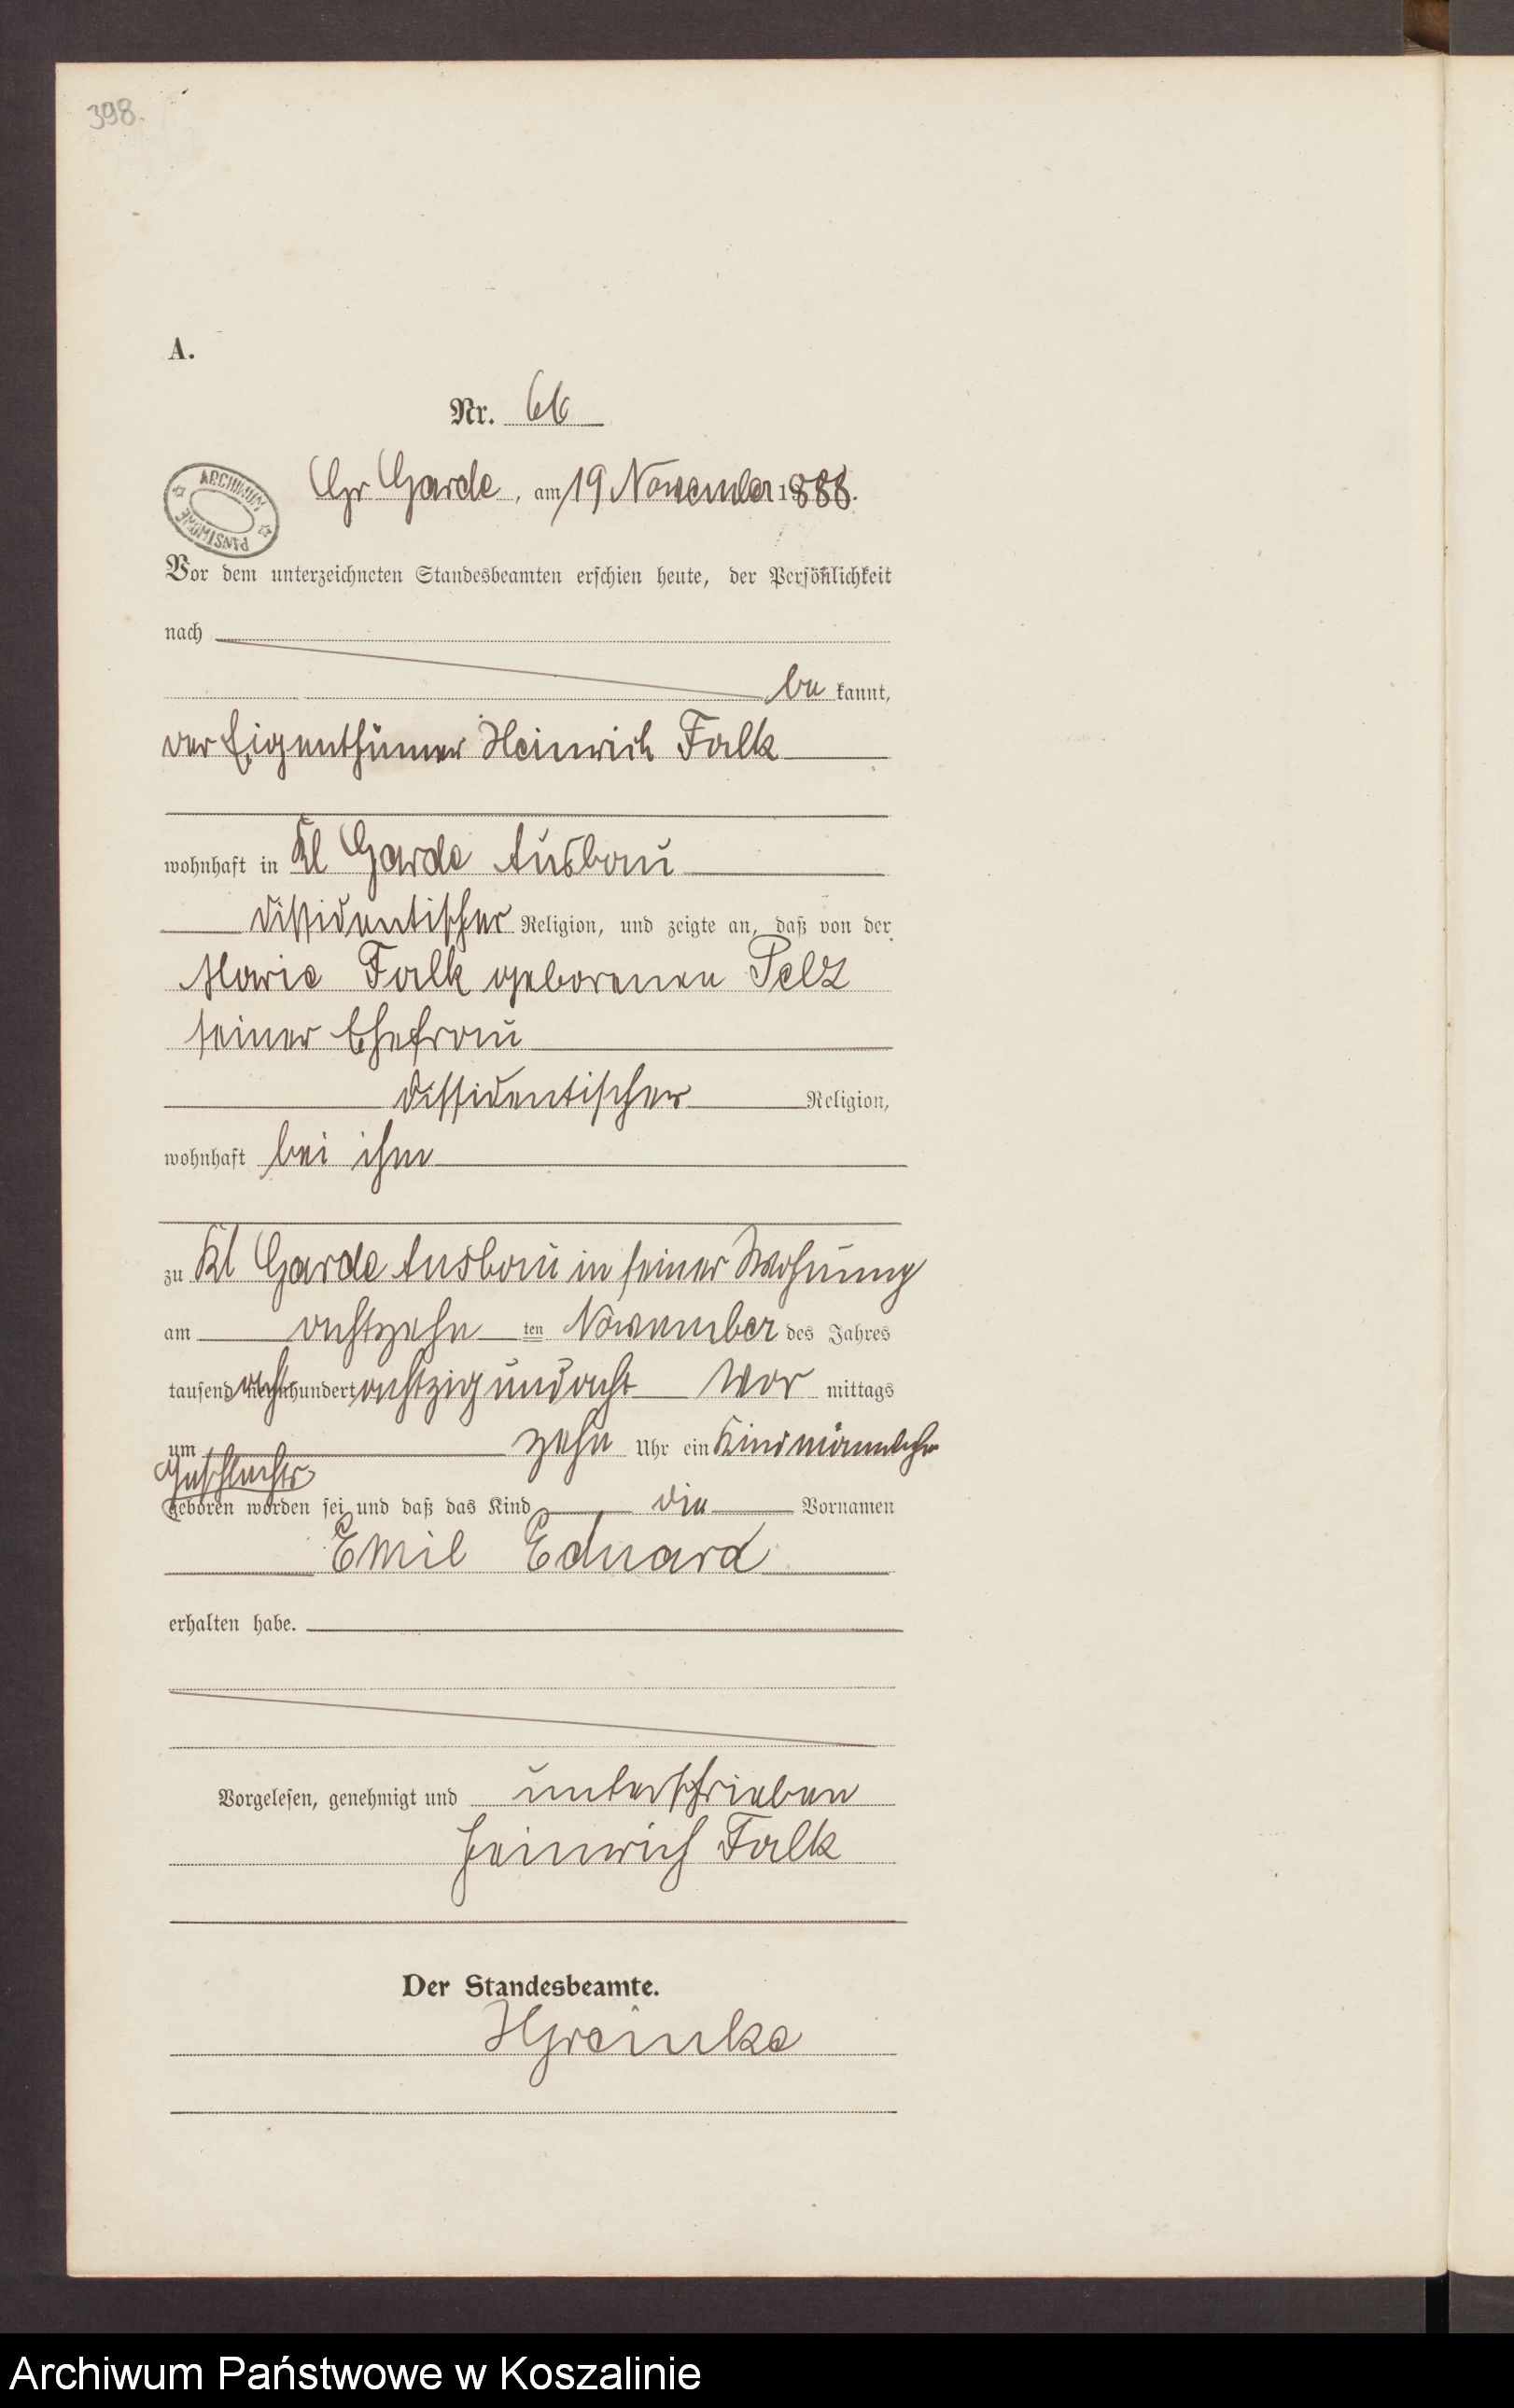 398.
A.
Nr. 66
ARCHIWUM PAŃSTWOWE
Gr Garde, am 19 November 1888.
Vor dem unterzeichneten Standesbeamten erschien heute, der Persönlichkeit
nach
be kannt,
der Eigenthümer Heinrich Falk
wohnhaft in Kl Garde Ausbau
dissidentischer Religion, und zeigte an, daß von der
Marie Falk geborenen Pelz
seiner Ehefrau
dissidentischer Religion,
wohnhaft bei ihm
zu Kl Garde Ausbau in seiner Wohnung
am achtzehn ten November des Jahres
tausend acht hundert achtzig und acht Vor mittags
um zehn Uhr ein Kind männlichen
Geschlechts
geboren worden sei, und daß das Kind die Vornamen
Emil Eduard
erhalten habe.
Vorgelesen, genehmigt und unterschrieben
Heinrich Falk
Der Standesbeamte.
HGreinke
Archiwum Państwowe w Koszalinie